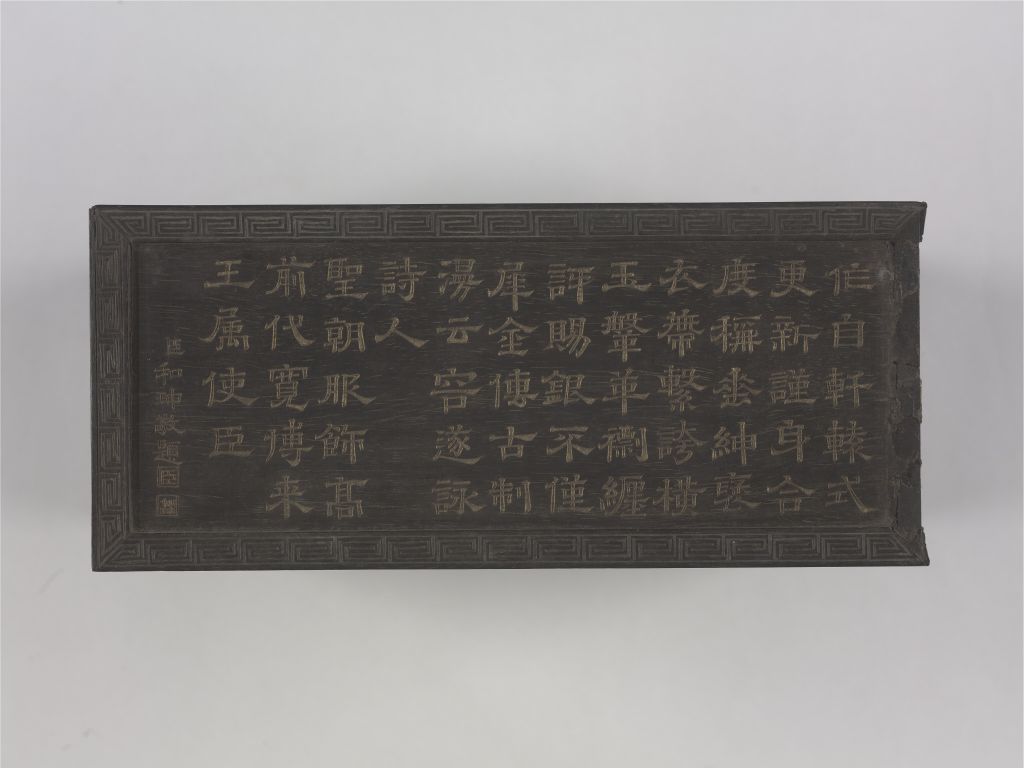 作自軒轅式
更新謹身合
度稱垂紳褒
衣帶繫誇橫
玉鞶革纏
評賜銀不僅
犀金傳古制
云容遂詠
詩人
聖朝服飾髙
前代寬博来
王属使臣
臣和珅敬題